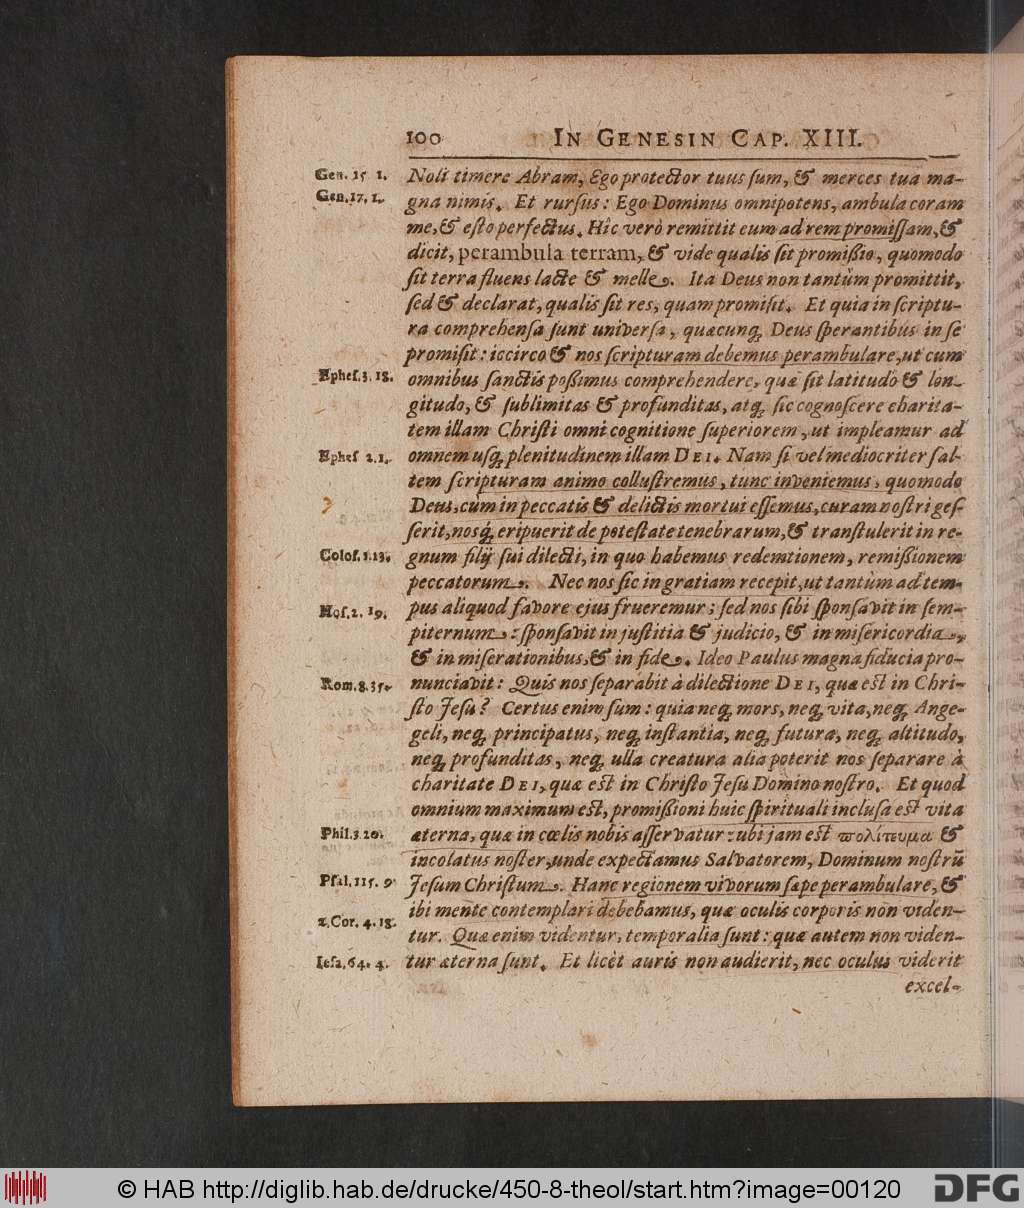 100 IN GENESIN CAP. XIII.
Gen. 15 1. Noli timere Abram, Ego protector tuus ſum, & merces tua ma-
Gen. 17. 1. gna nimis. Et rurſus: Ego Dominus omnipotens, ambula coram
me, & eſto perfectus. Hîc verò remittit eum ad rem promiſſam, &
dicit, perambula terram, & vide qualis ſit promißio, quomodo
ſit terra fluens lacte & melle. Ita Deus non tantùm promittit,
ſed & declarat, qualis ſit res, quam promiſit. Et quia in ſcriptu-
ra comprehenſa ſunt univerſa, quæcunq; Deus ſperantibus in ſe
promiſit: iccirco & nos ſcripturam debemus perambulare, ut cum
Epheſ. 3. 18. omnibus ſanctis poßimus comprehendere, quæ ſit latitudo & lon-
gitudo, & ſublimitas & profunditas, atq; ſic cognoſcere charita-
tem illam Chriſti omni cognitione ſuperiorem, ut impleamur ad
Epheſ 2. 1. omnem uſq; plenitudinem illam DEI. Nam ſi vel mediocriter ſal-
tem ſcripturam animo colluſtremus, tunc inveniemus, quomodo
Deus, cùm in peccatis & delictis mortui eſſemus, curam noſtri geſ-
ſerit, nosq; eripuerit de poteſtate tenebrarum, & tranſtulerit in re-
Coloſ. 1. 13. gnum filij ſui dilecti, in quo habemus redemtionem, remißionem
peccatorum. Nec nos ſic in gratiam recepit, ut tantùm ad tem-
Hoſ. 2. 19. pus aliquod favore ejus frueremur; ſed nos ſibi ſponſavit in ſem-
piternum: ſponſavit in juſtitia & judicio, & in miſericordia,
& in miſerationibus, & in fide. Ideo Paulus magna fiducia pro-
Rom. 8. 35. nunciavit: Quis nos ſeparabit à dilectione DEI, quæ eſt in Chri-
ſto Jeſu? Certus enim ſum: quia neq; mors, neq; vita, neq; Ange-
geli, neq; principatus, neq; inſtantia, neq; futura, neq; altitudo,
neq; profunditas, neq; ulla creatura alia poterit nos ſeparare à
charitate DEI, quæ eſt in Chriſto Jeſu Domino noſtro. Et quod
omnium maximum eſt, promißioni huic ſpirituali incluſa eſt vita
Phil. 3. 20. æterna, quæ in cœlis nobis aſſervatur: ubi jam eſt πολίτευμα &
incolatus noſter, unde expectamus Salvatorem, Dominum noſtrũ
Pſal. 115. 9. Jeſum Chriſtum. Hanc regionem vivorum ſæpe perambulare, &
ibi mente contemplari debebamus, quæ oculis corporis non viden-
2. Cor. 4. 18. tur. Quæ enim videntur, temporalia ſunt: quæ autem non viden-
Ieſa. 64. 4. tur æterna ſunt. Et licèt auris non audierit, nec oculus viderit
excel-
© HAB http://diglib.hab.de/drucke/450-8-theol/start.htm?image=00120
DFG